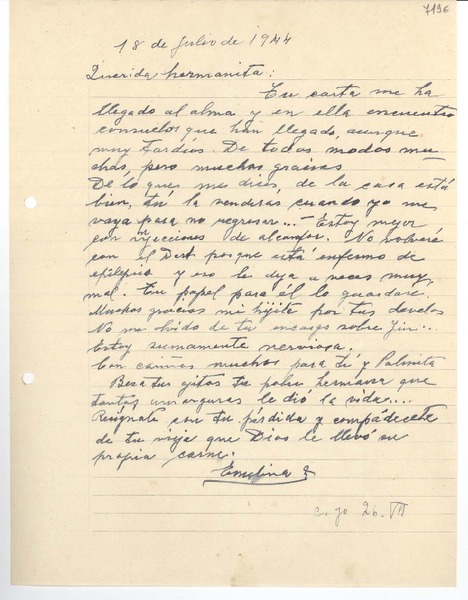 7196
18 de Julio de 1944
Querida hermanita:
Tu carta me ha
llegado al alma, y en ella encuentro
consuelos que han llegado, aunque
muy tardíos. De todos modos mu-
chas, pero muchas gracias
De lo que me dices, de la casa está
bien, tú la venderas cuando yo me
vaya para no regresar... – Estoy mejor
con inyecciones de alcanfor. No volveré
con el Dr. porque está enfermo de
epilepsia y eso le deja a veces muy
mal. Tu papel para él lo guardaré.
Muchas gracias mi hijita por tus desvelos
No me olvido de tu encargo sobre Yin...
Estoy sumamente nerviosa.
Con cariños muchos para tí y Palmita
Besa tus ojitos tu pobre hermana que
tantas amarguras le dió la vida....
Resígnate con tu pérdida y compadécete
de tu vieja que Dios le llevó su
propia carne.
Emelina
26-VII